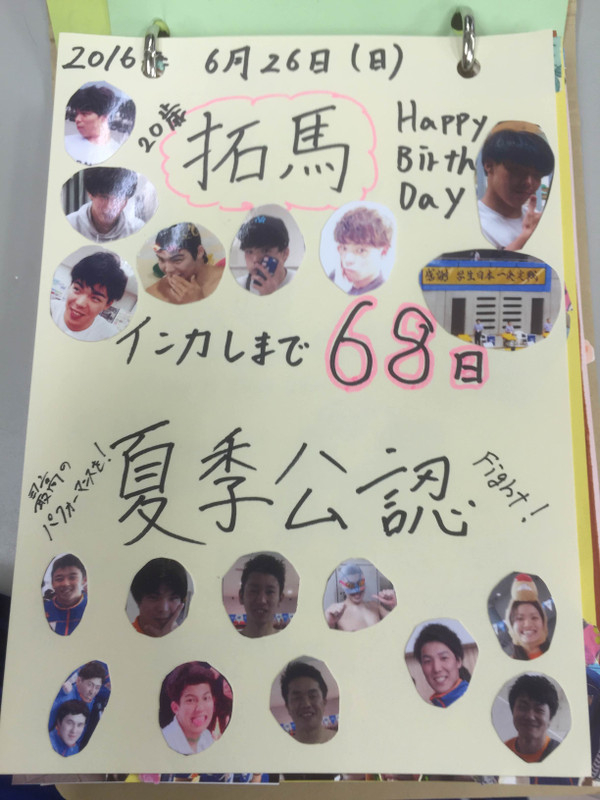 2016年 6月26日(日)
20歳
拓馬
Happy
Birth
Day
インカレまで 68日
最高の
パフォーマンスを!
夏季公認
Fight!